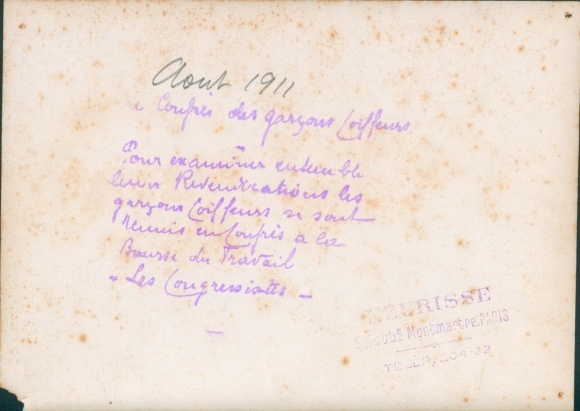 Aout 1911
Congrès des garçons Coiffeurs
Pour examiner ensemble
leurs Revendications les
garçons Coiffeurs se sont
réunis en Congrès a la
Bourse du Travail
- Les Congressistes -
MEURISSE
Montmartre, PARIS
TELEP. 204-02